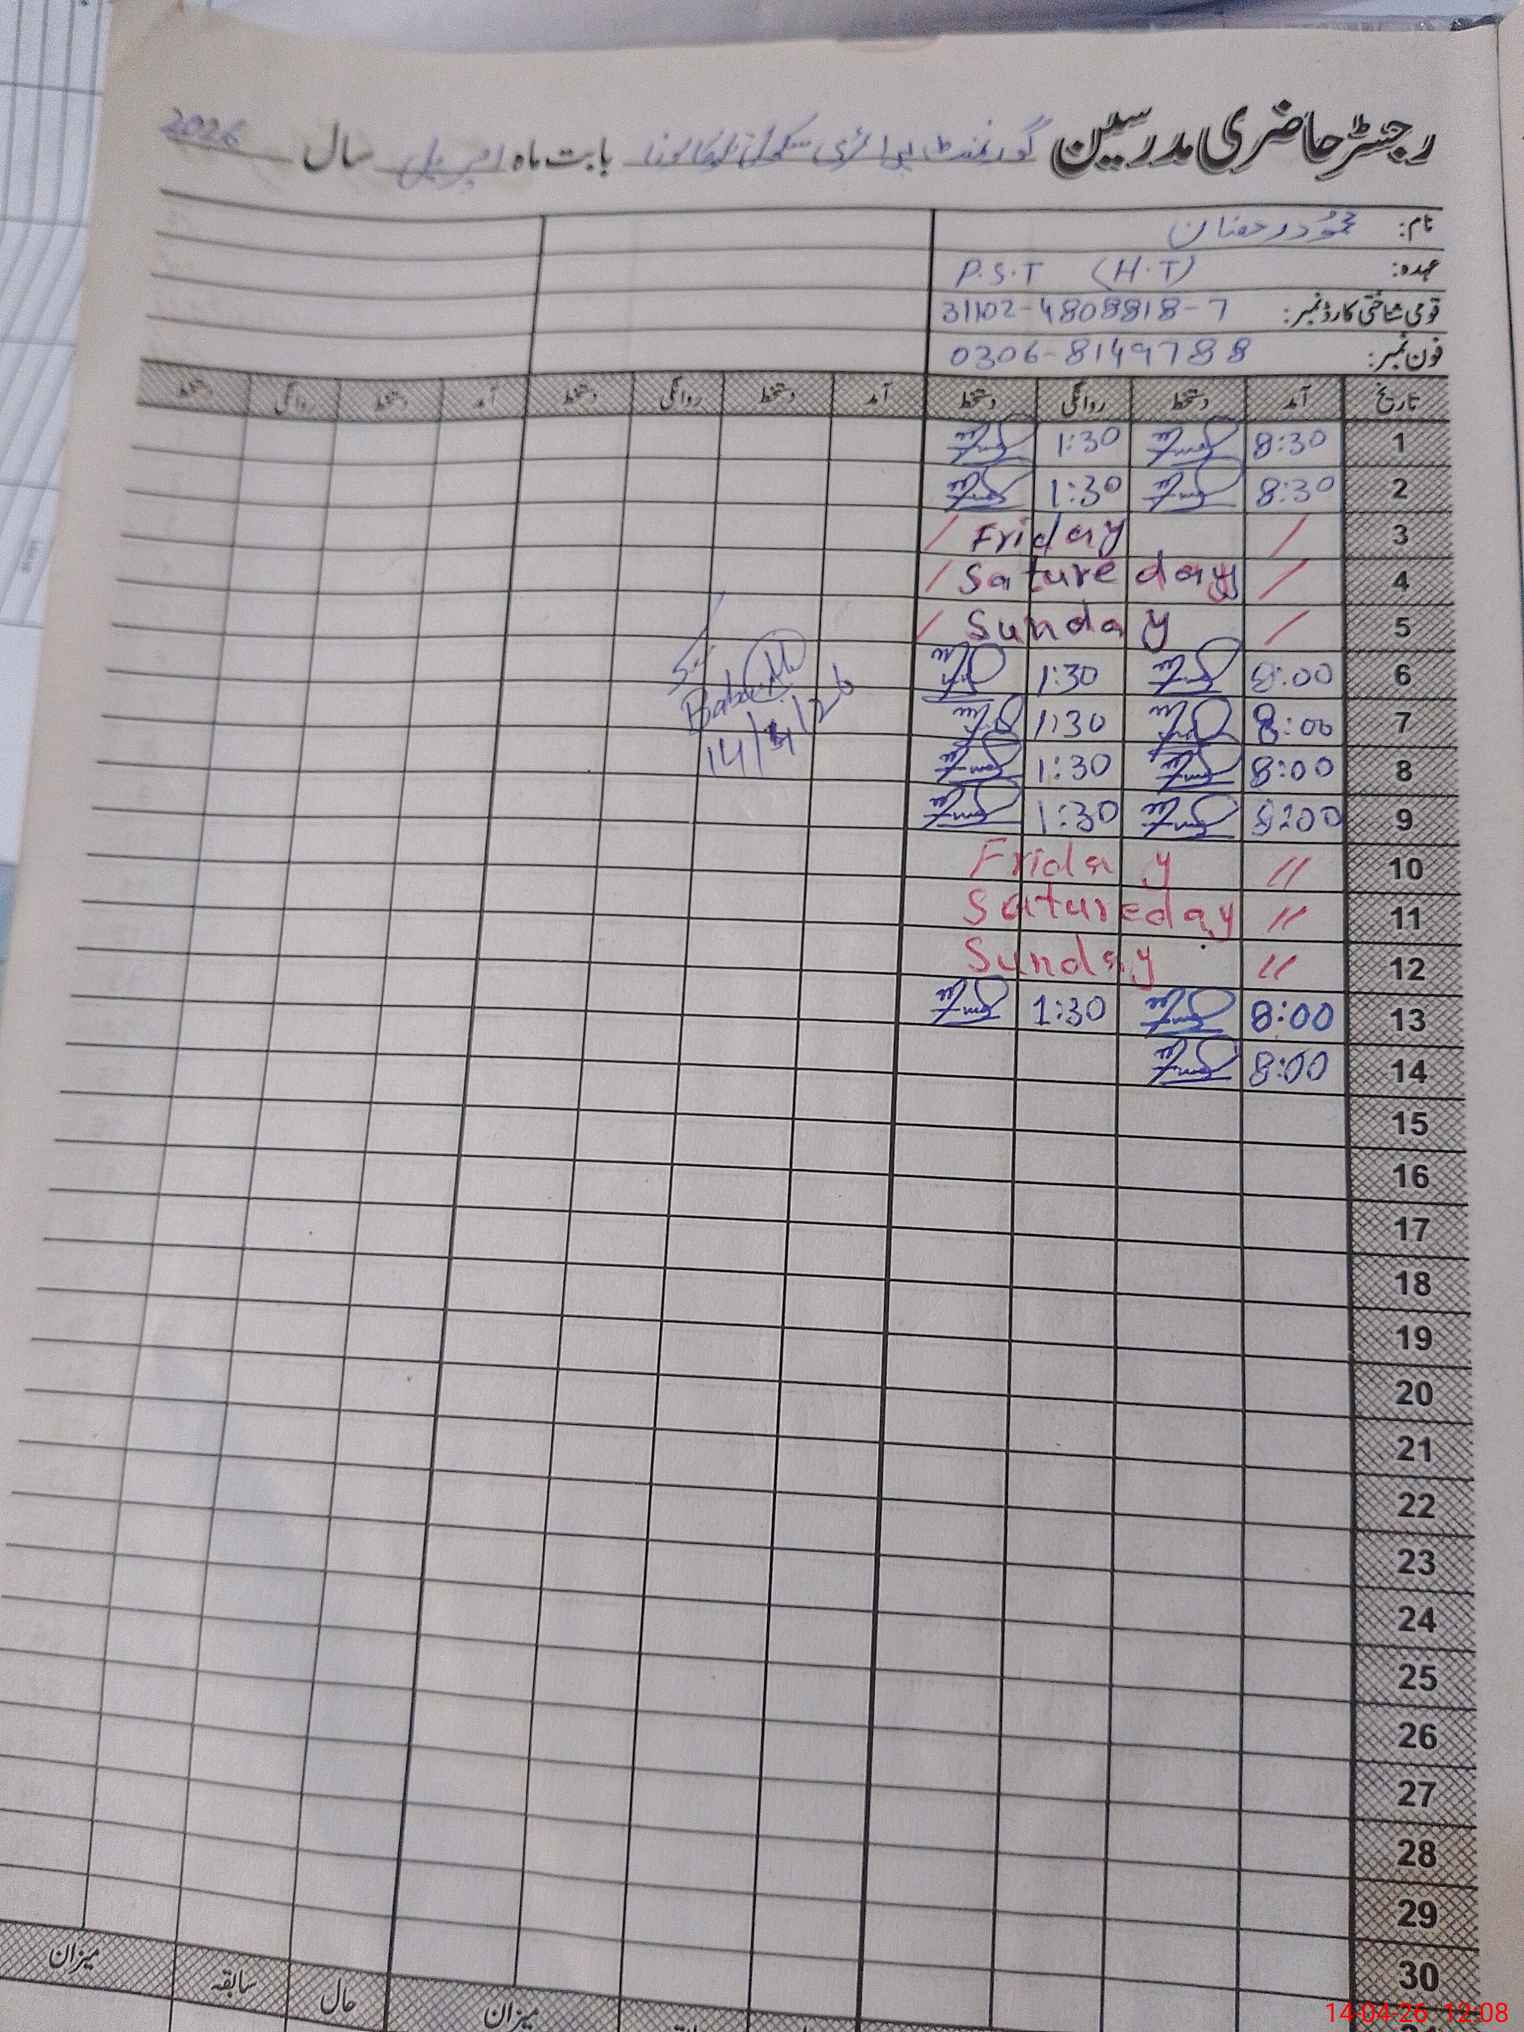 رجسٹر حاضری مدرسین گورنمنٹ پرائمری سکول بابت ماہ اپریل سال 2026
نام:
عہدہ: P.S.T (H.T)
قومی شناختی کارڈ نمبر: 31102-4808818-7
فون نمبر: 0306-8149788
تاریخ آمد دستخط روانگی دستخط آمد دستخط روانگی دستخط آمد دستخط روانگی دستخط
1 8:30 1:30
2 8:30 1:30
3 / Friday /
4 / Satureday /
5 / Sunday /
6 8:00 1:30
7 8:00 1:30
8 8:00 1:30
9 8:00 1:30
10 // Friday
11 // Satureday
12 // Sunday
13 8:00 1:30
14 8:00
14/4/26
15
16
17
18
19
20
21
22
23
24
25
26
27
28
29
30
میزان حال سابقہ میزان
14-04-26 12:08